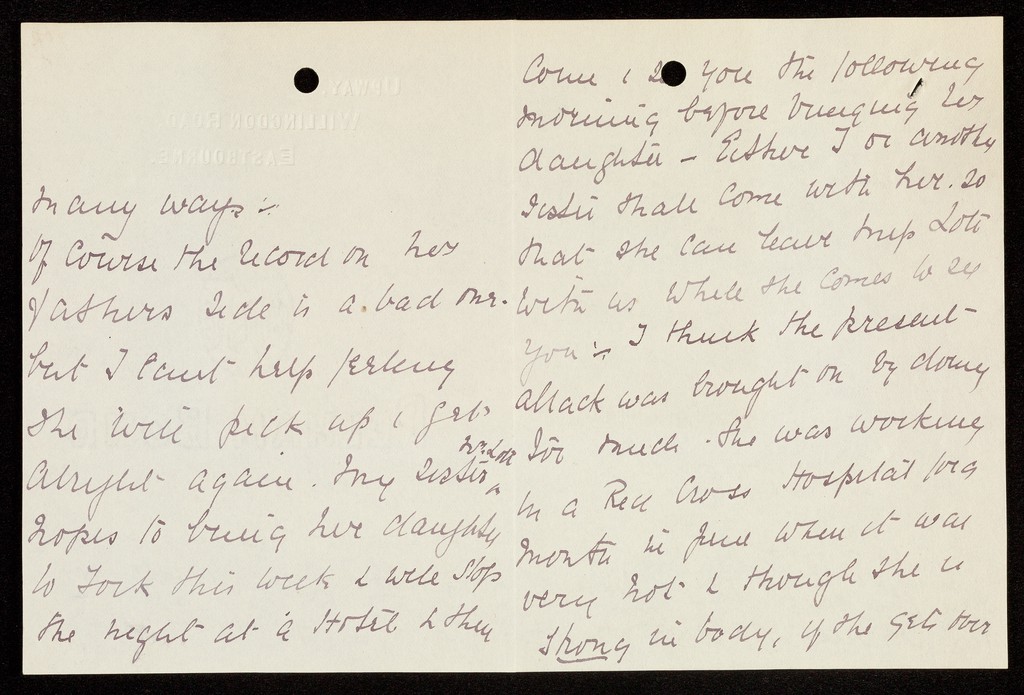 many ways :-
Of course the record on her
fathers side is a bad one.
but I cant help feeling
she will pick up & get
alright again. My sister Mrs Lott
hopes to bring her daughter
to York this week & will stop
the night at a Hotel & then
Come & see you the following
morning before bringing her
daughter - Either I or another
sister shall come with her. so
that she can leave Miss Lott
with us while she comes to see
you :- I think the present
attack was brought on by doing
too much. She was working
in a Red Cross Hospital for a
month in June when it was
very hot & though she is
strong in body, if she gets over
UPWAY,
WILLINGDON ROAD,
EASTBOURNE.